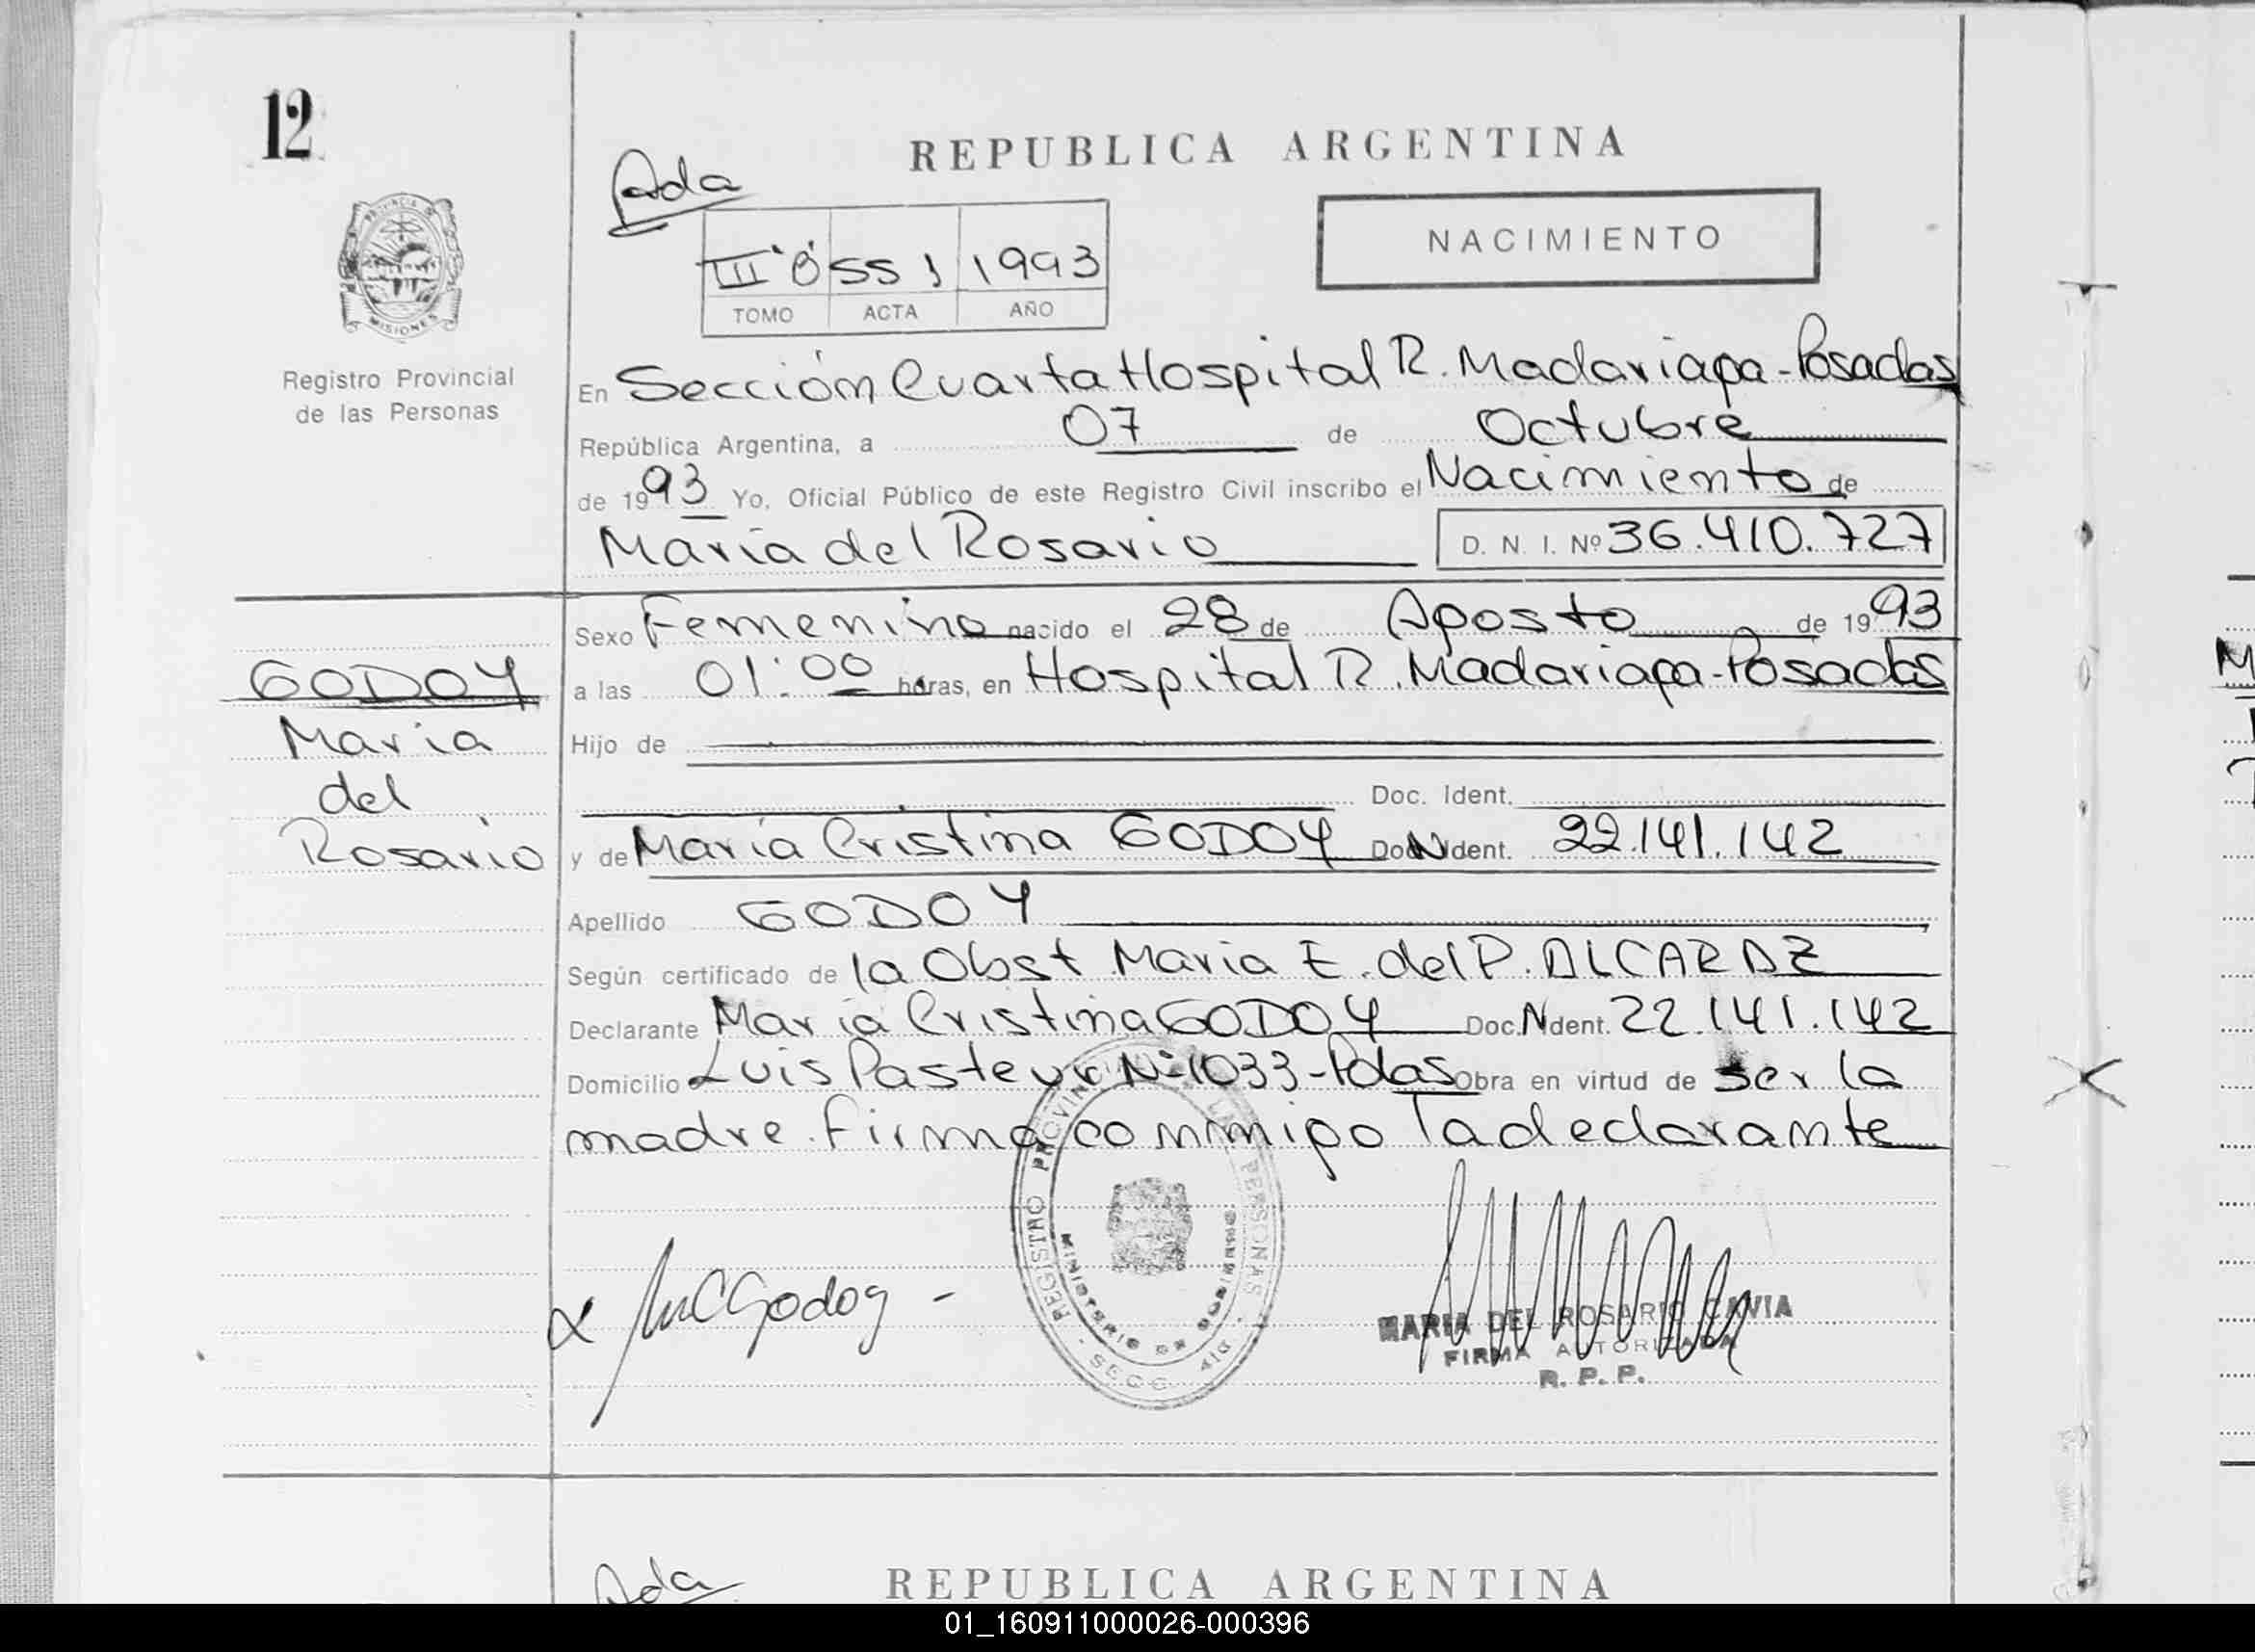 12
REPUBLICA ARGENTINA
Ada
NACIMIENTO
III "B" 551 1993
TOMO ACTA AÑO
PROVINCIA DE
MISIONES
Registro Provincial
de las Personas
En Sección Cuarta Hospital R. Madariaga - Posadas
República Argentina, a 07 de Octubre
de 1993 Yo, Oficial Público de este Registro Civil inscribo el Nacimiento de
María del Rosario D. N. I. Nº 36.410.727
Sexo Femenino nacido el 28 de Agosto de 1993
a las 01:00 horas, en Hospital R. Madariaga - Posadas
Hijo de
Doc. Ident.
y de María Cristina GODOY Doc. Ident. 22.141.142
Apellido GODOY
Según certificado de la Obst María E. del P. ALCARAZ
Declarante María Cristina GODOY Doc. Ident. 22.141.142
Domicilio Luis Pasteur Nº 1033 - Pdas Obra en virtud de ser la
madre. Firma conmigo la declarante
GODOY
María
del
Rosario
REGISTRO PROVINCIAL DE LAS PERSONAS
MINISTERIO DE GOBIERNO
SECC. 4ta
MCGodoy -
MARIA DEL ROSARIO CAVIA
FIRMA AUTORIZADA
R. P. P.
Ada
REPUBLICA ARGENTINA
01_160911000026-000396